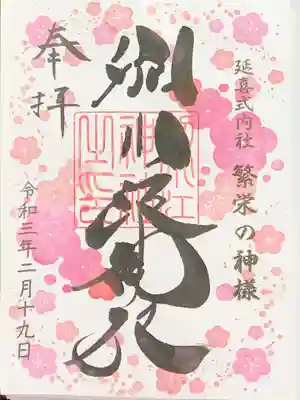 延喜式内社 繁栄の神様
別小江神社
奉拝
令和三年二月十九日